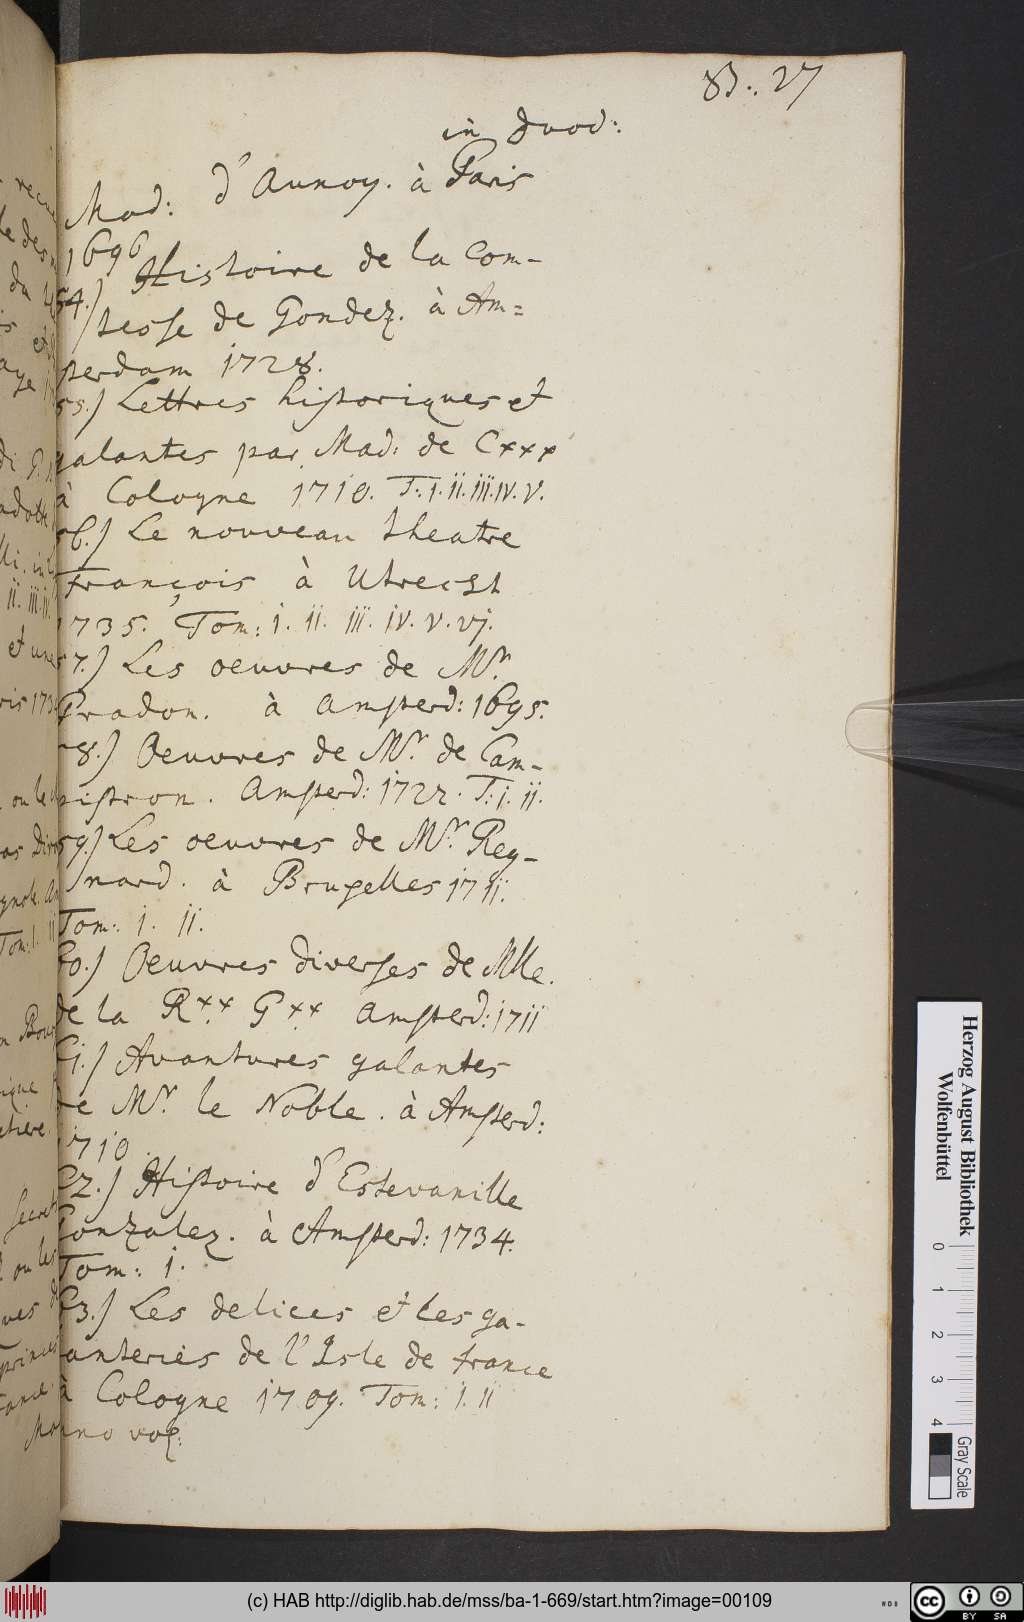 B. 27
in duod:
Mad: d'Aunoy. à Paris
1696
54.) Histoire de la Com-
tesse de Gondez. à Am=
sterdam 1728.
55.) Lettres historiques et
galantes par Mad: de Cxxx
à Cologne 1710. T. I. II. III. IV. V.
56.) Le nouveau theatre
françois à Utrecht
1735. Tom: I. II. III. IV. V. VI.
57.) Les oeuvres de Mr.
Pradon. à Amsterd: 1695.
58.) Oeuvres de Mr. de Cam-
pistron. Amsterd: 1722. T: I. II.
59.) Les oeuvres de Mr. Reg-
nard. à Bruxelles 1711.
Tom: I. II.
60.) Oeuvres diverses de Mlle.
de la Rxx Gxx Amsterd: 1711
61.) Avantures galantes
de Mr. le Noble. à Amsterd:
1710.
62.) Histoire d'Estevanille
Gonzalez. à Amsterd: 1734.
Tom: I.
63.) Les delices et les ga-
lanteries de l'Isle de france
à Cologne 1709. Tom: I. II
Herzog August Bibliothek
Wolfenbüttel
0 1 2 3 4
Gray Scale
(c) HAB http://diglib.hab.de/mss/ba-1-669/start.htm?image=00109
cc BY SA